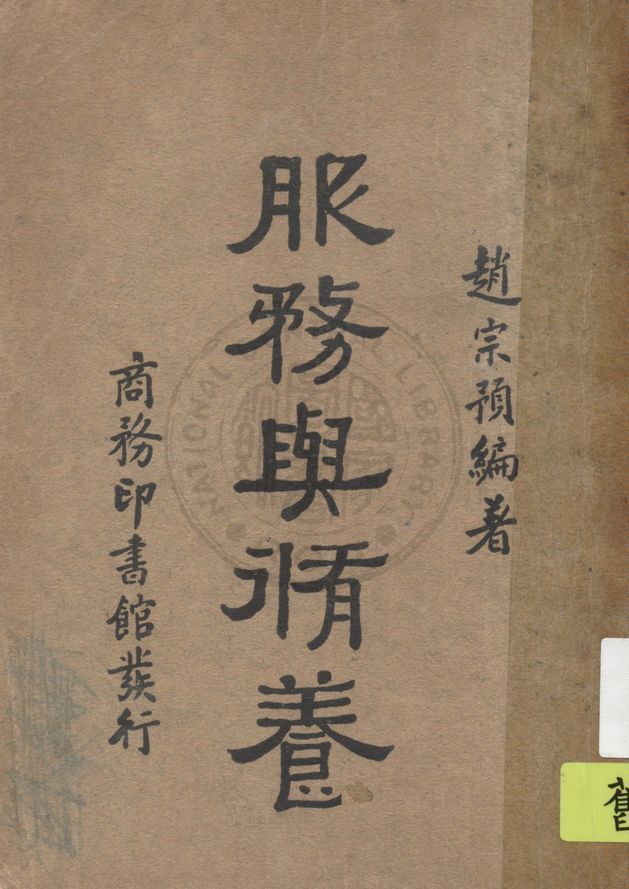 趙宗預編著
服務與脩養
商務印書館發行
NATIONAL LIBRARY
舊